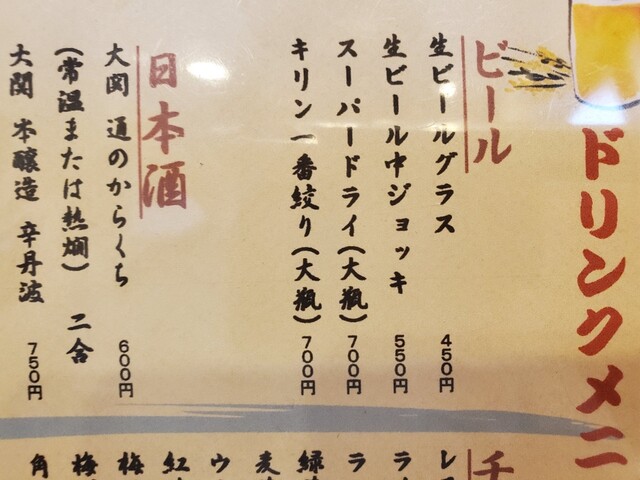 ドリンクメニ
ビール
生ビールグラス 450円
生ビール中ジョッキ 550円
スーパードライ(大瓶) 700円
キリン一番絞り(大瓶) 700円
日本酒
大関 道のからくち 600円
(常温または熱燗) 二合
大関 本醸造 辛丹波 750円
チ
レ
ラ
ラ
緑
麦
ウ
紅
梅
梅
角